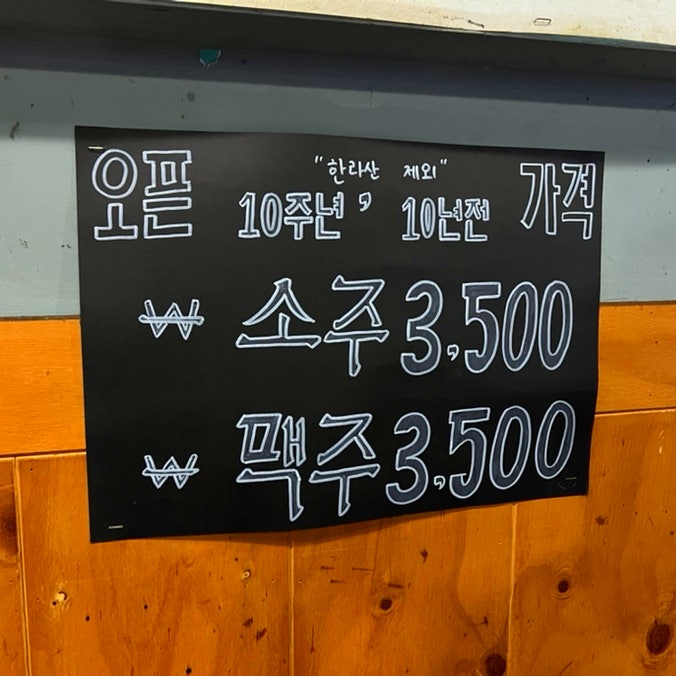 "한라산 제외"
오픈 10주년, 10년전 가격
₩ 소주 3,500
₩ 맥주 3,500